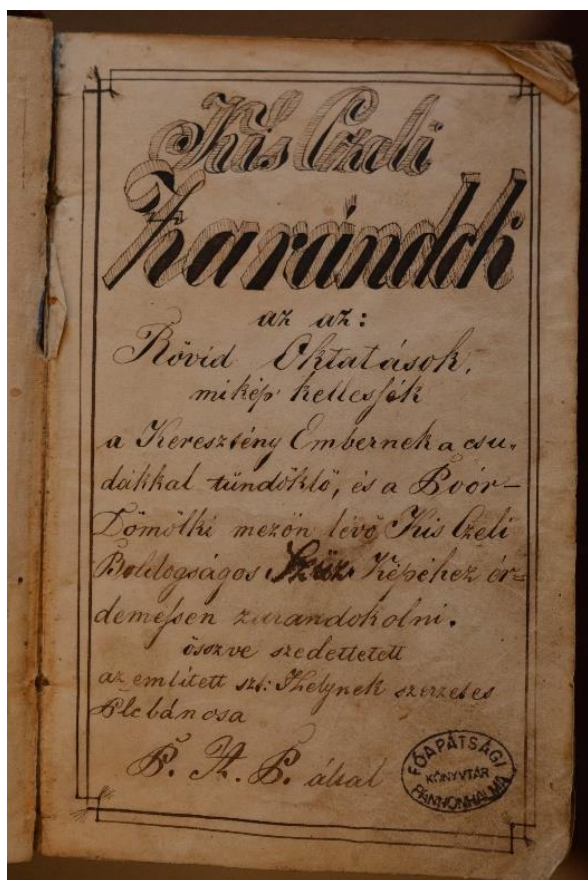 Kis Czeli
Zarándok
az az:
Rövid Oktatások,
mikép kellessék
a Keresztény Embernek a csu„
dákkal tündöklő, és a
Dömölki mezön lévö Kis Czeli
Boldogságos Szűz Képéhez ér=
demessen zarandokolni.
öszve szedettetett
az említett szt: Helynek szerzetes
Plebánosa
által
FŐAPÁTSÁGI
KÖNYVTÁR
PANNONHALMA